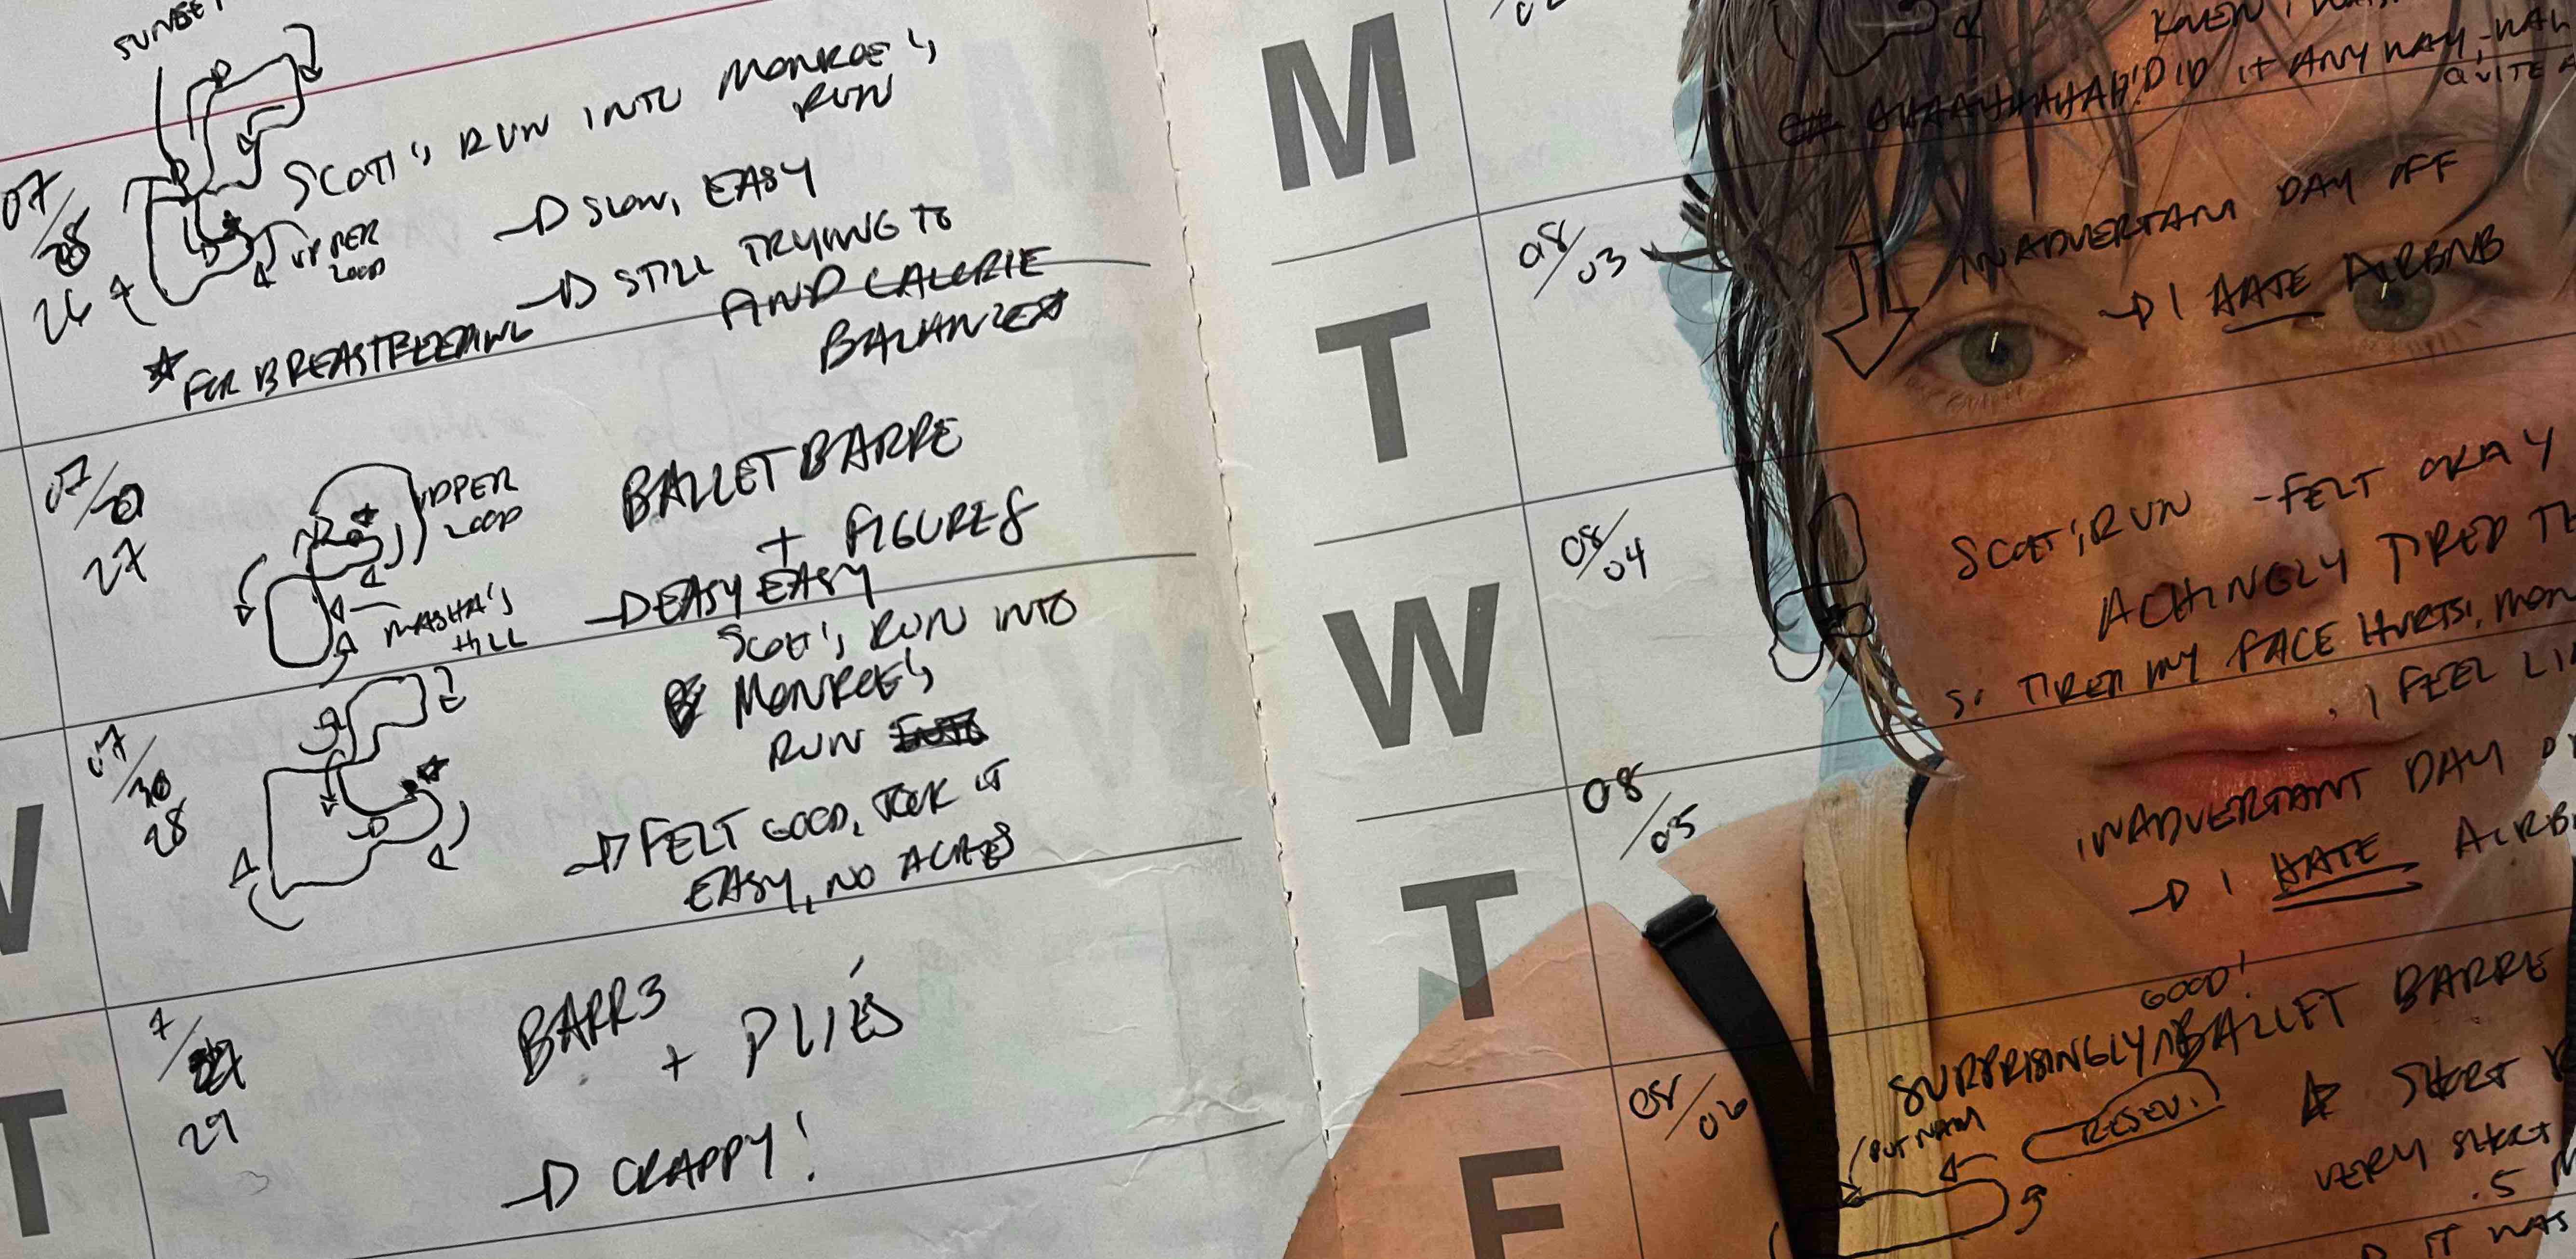 SUNSET
07/
26
SCOTT'S RUN INTO MONROE'S
RUN
→ SLOW, EASY
→ STILL TRYING TO
FIND CALORIE
BALANCE
* FOR BREASTFEEDING
UPPER
LOOP
07/
27
UPPER
LOOP
MASHA'S
HILL
BALLET BARRE
+ FIGURE 8
→ EASY EASY
W
07/30
28
SCOTT'S RUN INTO
MONROE'S
RUN
→ FELT GOOD, TOOK IT
EASY, NO ACHES
T
7/
29
BARR3
+ PLIÉS
→ CRAPPY!
M
DID IT ANY WAY,
QUITE A
T
08/03
INADVERTANT DAY OFF
→ I HATE AIRBNB
W
08/04
SCOTT'S RUN - FELT OKAY
ACHINGLY TIRED
SO TIRED MY FACE HURTS,
I FEEL
T
08/05
INADVERTANT DAY
→ I HATE
F
08/06
GOOD!
SURPRISINGLY ^ BALLET BARRE
PUTNAM
RESEV.
SHORT
VERY SHORT
.5
IT WAS